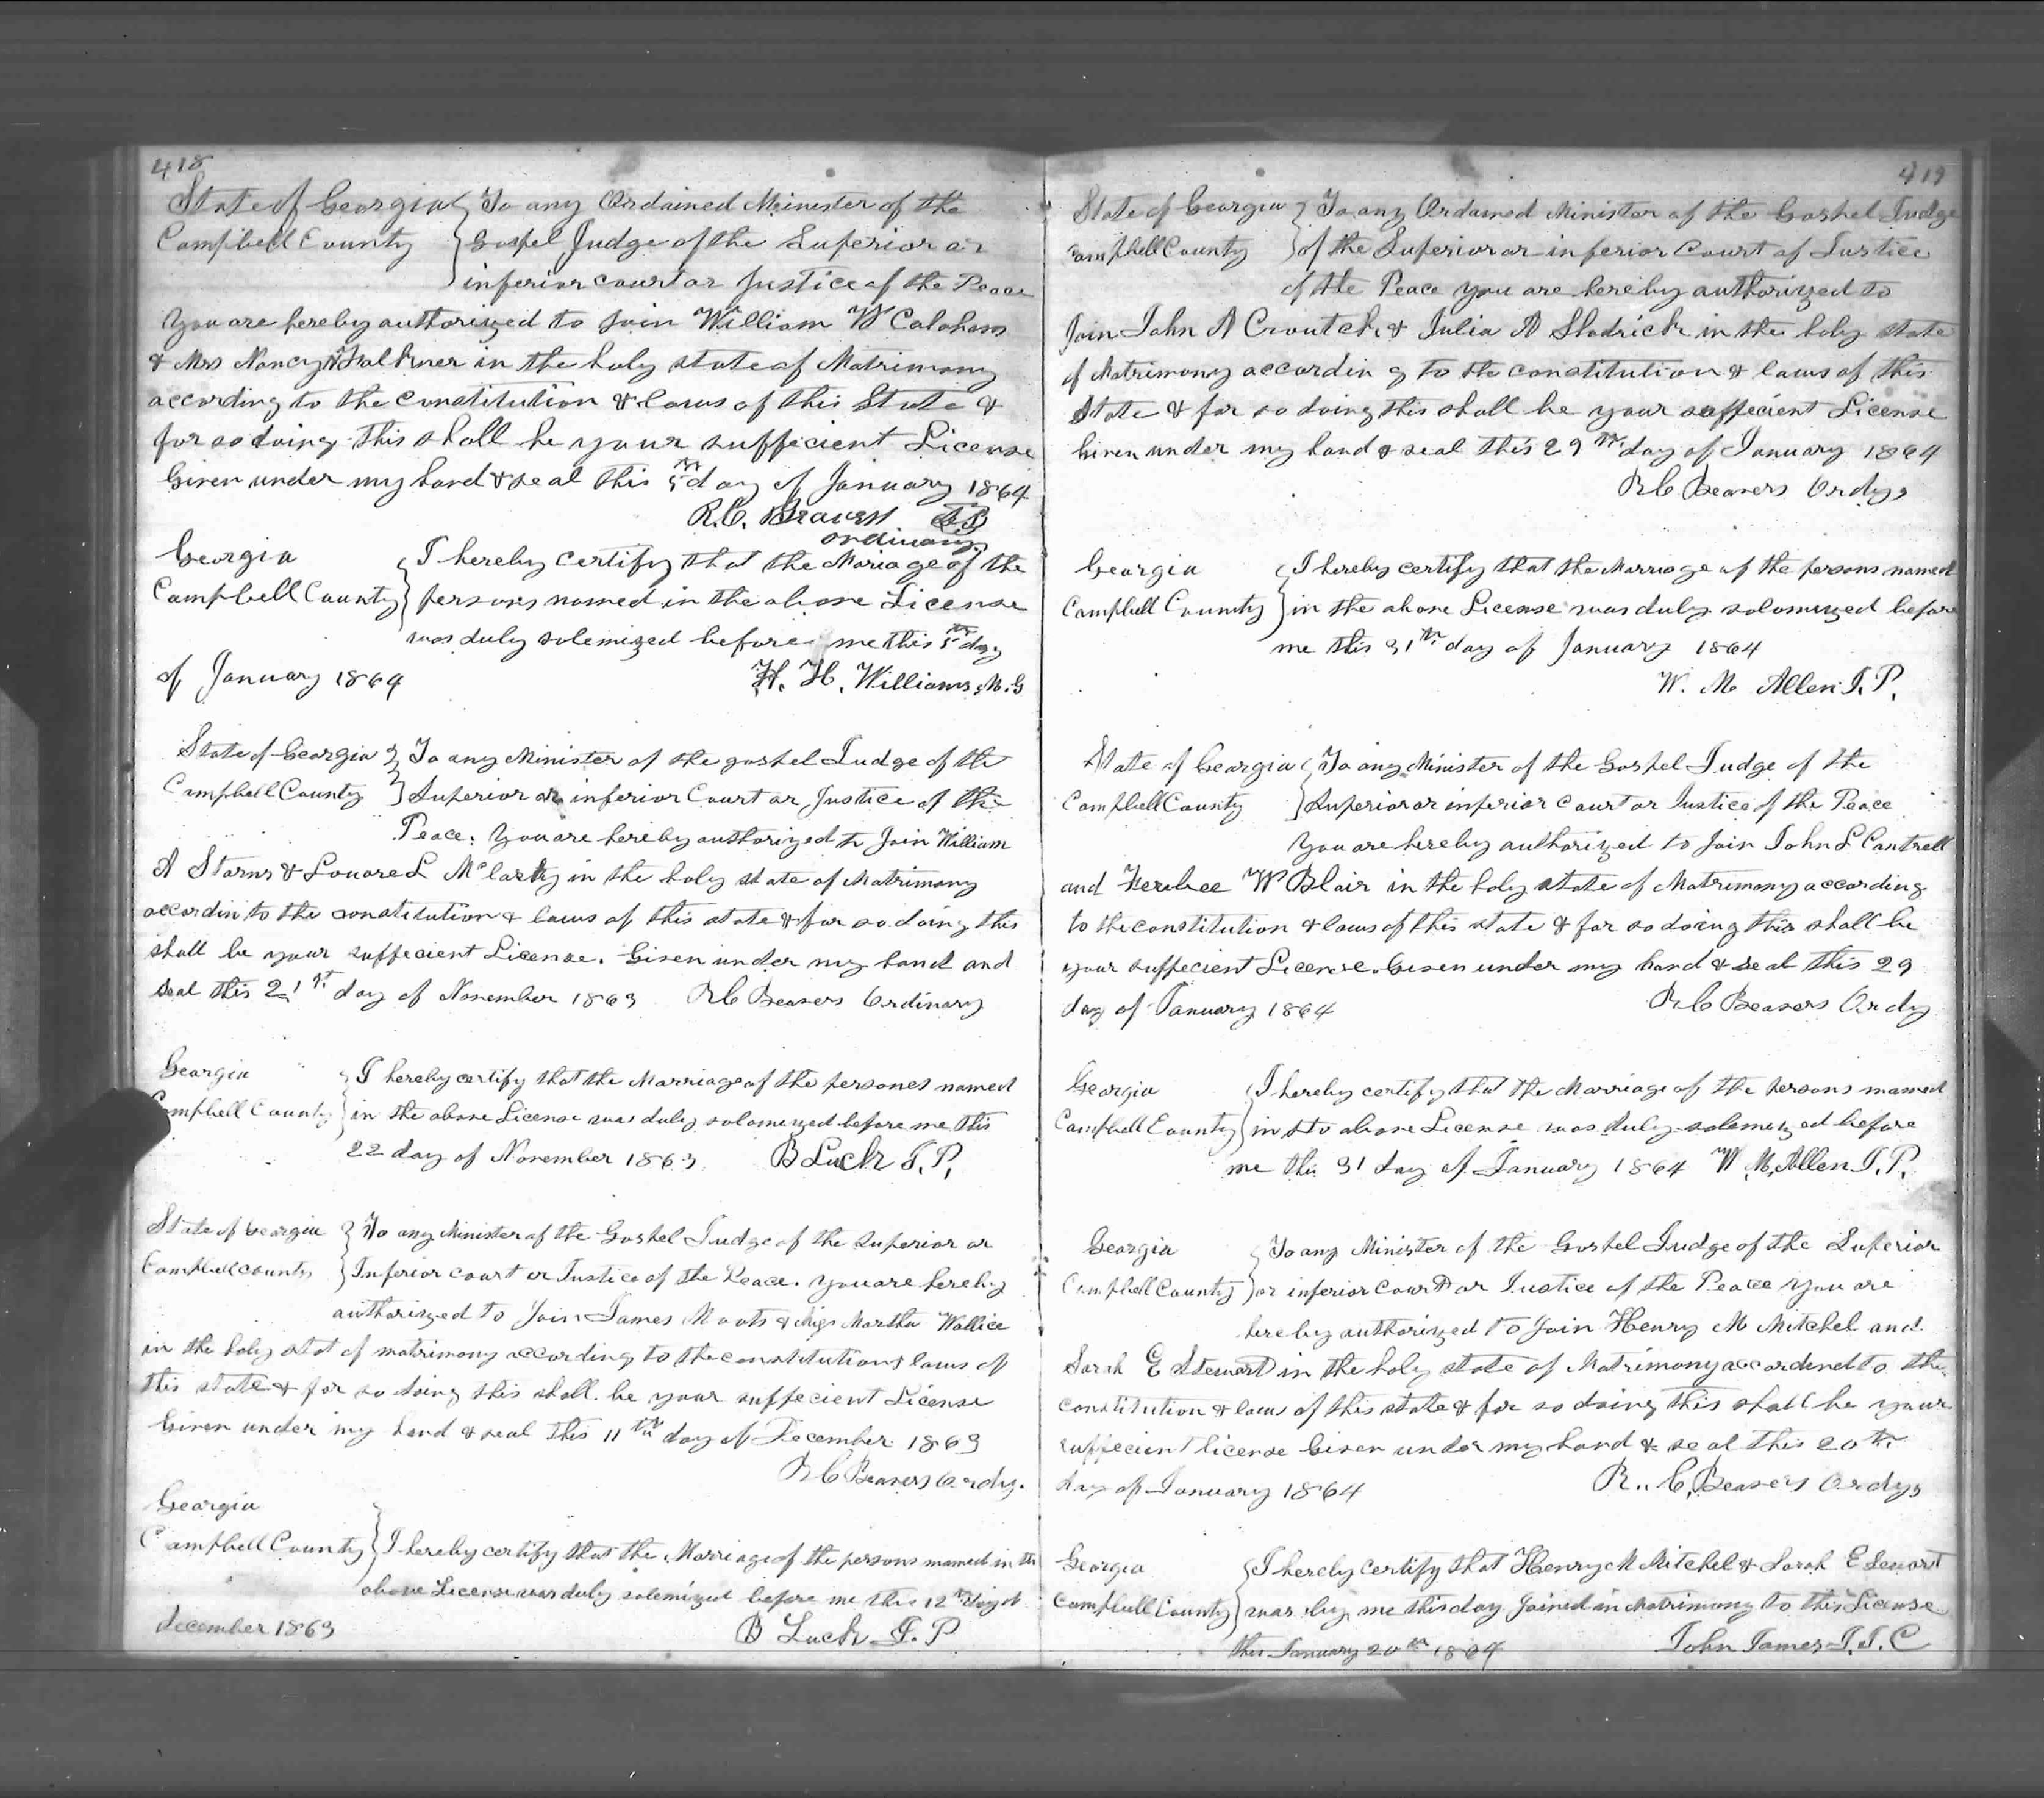 418
State of Georgia } To any Ordained Meinester of the
Campbell County } Gospel Judge of the Superior or
inferior court or Justice of the Peace
You are hereby authorized to join William W Calahans
& Mrs Nancy Falkner in the holy state of Matrimony
according to the constitution & laws of this State &
for so doing this shall be your suffecient License
Given under my hand & seal this 5th day of January 1864
R. C. Beavers
ordinary
Georgia } I hereby certify that the Mariage of the
Campbell County } persons named in the above License
was duly solemized before me this 5th day
of January 1864 H. H. Williams, M. G
State of Georgia } To any Minister of the gospel Judge of the
Campbell County } Superior or inferior Court or Justice of the
Peace. You are hereby authorized to Join William
A Starns & Louare L McLarty in the holy state of Matrimony
accordin to the constitution & laws of this state & for so doing this
shall be your suffecient License. Given under my hand and
seal this 21st day of November 1863 R C Beavers Ordinary
Georgia } I hereby certify that the Marriage of the persones named
Campbell County } in the above License was duly solomized before me this
22 day of November 1863 B Luck J. P.
State of Georgia } To any Minister of the Goshel Judge of the Superior or
Campbell County } Inferior court or Justice of the Peace. You are hereby
authorized to Join James Moots & Miss Martha Wallice
in the holy stat of matrimony according to the constitution & laws of
this state & for so doing this shall be your suffecient License
Given under my hand & seal this 11th day of December 1863
R C Beavers Ordy.
Georgia
Campbell County } I hereby certify that the Marriage of the persons named in the
above License was duly solemized before me this 12th day of
december 1863 B Luck J. P
419
State of Georgia } To any Ordained Minister of the Goshel Judge
Campbell County } of the Superior or inferior Court of Justice
of the Peace you are hereby authorized to
Join John A Croutch & Julia A Shadrick in the holy state
of Matrimony according to the constitution & laws of this
State & for so doing this shall be your suffecient License
Given under my hand & seal this 29th day of January 1864
R C Beavers Ordy
Georgia } I hereby certify that the Marriage of the persons named
Campbell County } in the above License was duly solomized before
me this 31th day of January 1864
W. M Allen J. P.
State of Georgia } To any Minister of the Gospel Judge of the
Campbell County } Superior or inferior court or Justice of the Peace
You are hereby authorized to Join John L Cantrell
and Ferebee W Blair in the holy state of Matrimony according
to the constitution & laws of this state & for so doing this shall be
your suffecient License. Given under my hand & seal this 29
day of January 1864 R C Beavers Ordy
Georgia } I hereby certify that the Marriage of the persons named
Campbell County } in the above License was duly solemized before
me this 31 day of January 1864 W M, Allen J. P.
Georgia } To any Minister of the Gospel Judge of the Superior
Campbell County } or inferior court or Justice of the Peace You are
hereby authorized to Join Henry M Mitchel and
Sarah E Stewart in the holy state of Matrimony to the
constitution & laws of this state & for so doing this shall be your
suffecient license Given under my hand & seal this 20th
day of January 1864 R. C. Beavers Ordy
Georgia } I hereby certify that Henry M Mitchel & Sarah E Sewart
Campbell County } was by me this day Joined in Matrimony to this License
this January 20th 1864 John James J. J. C